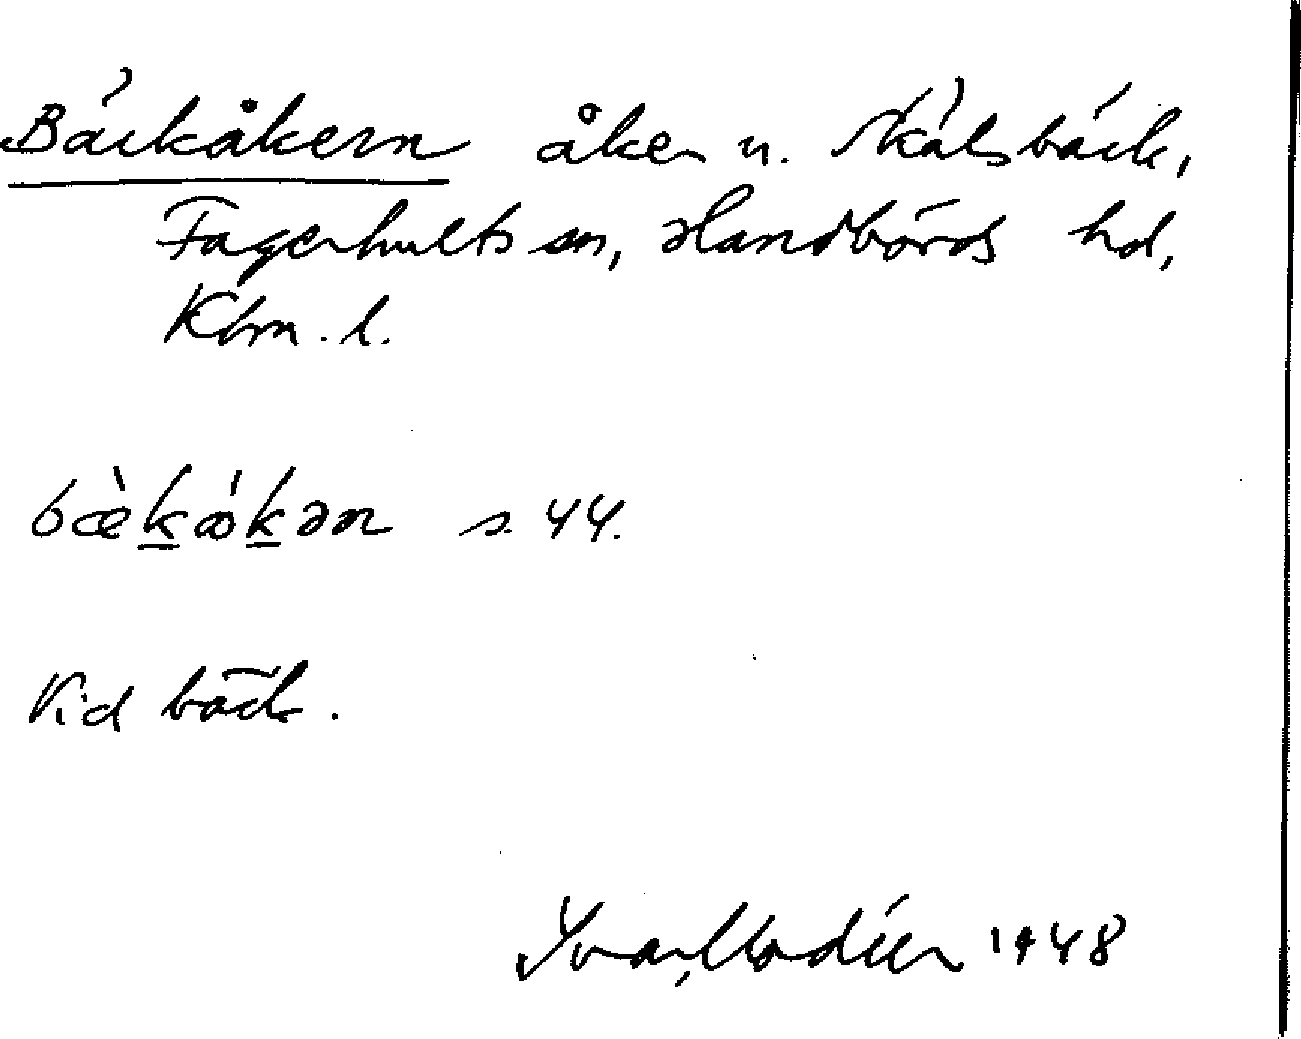 Bäckåkern åker u. Skälsbäck,
Fagerhults sn, Handbörds hd,
Klm. l.
bæ̀k̲ǻk̲ən s. 44.
Vid bäck.
Ivar Modéer 1948